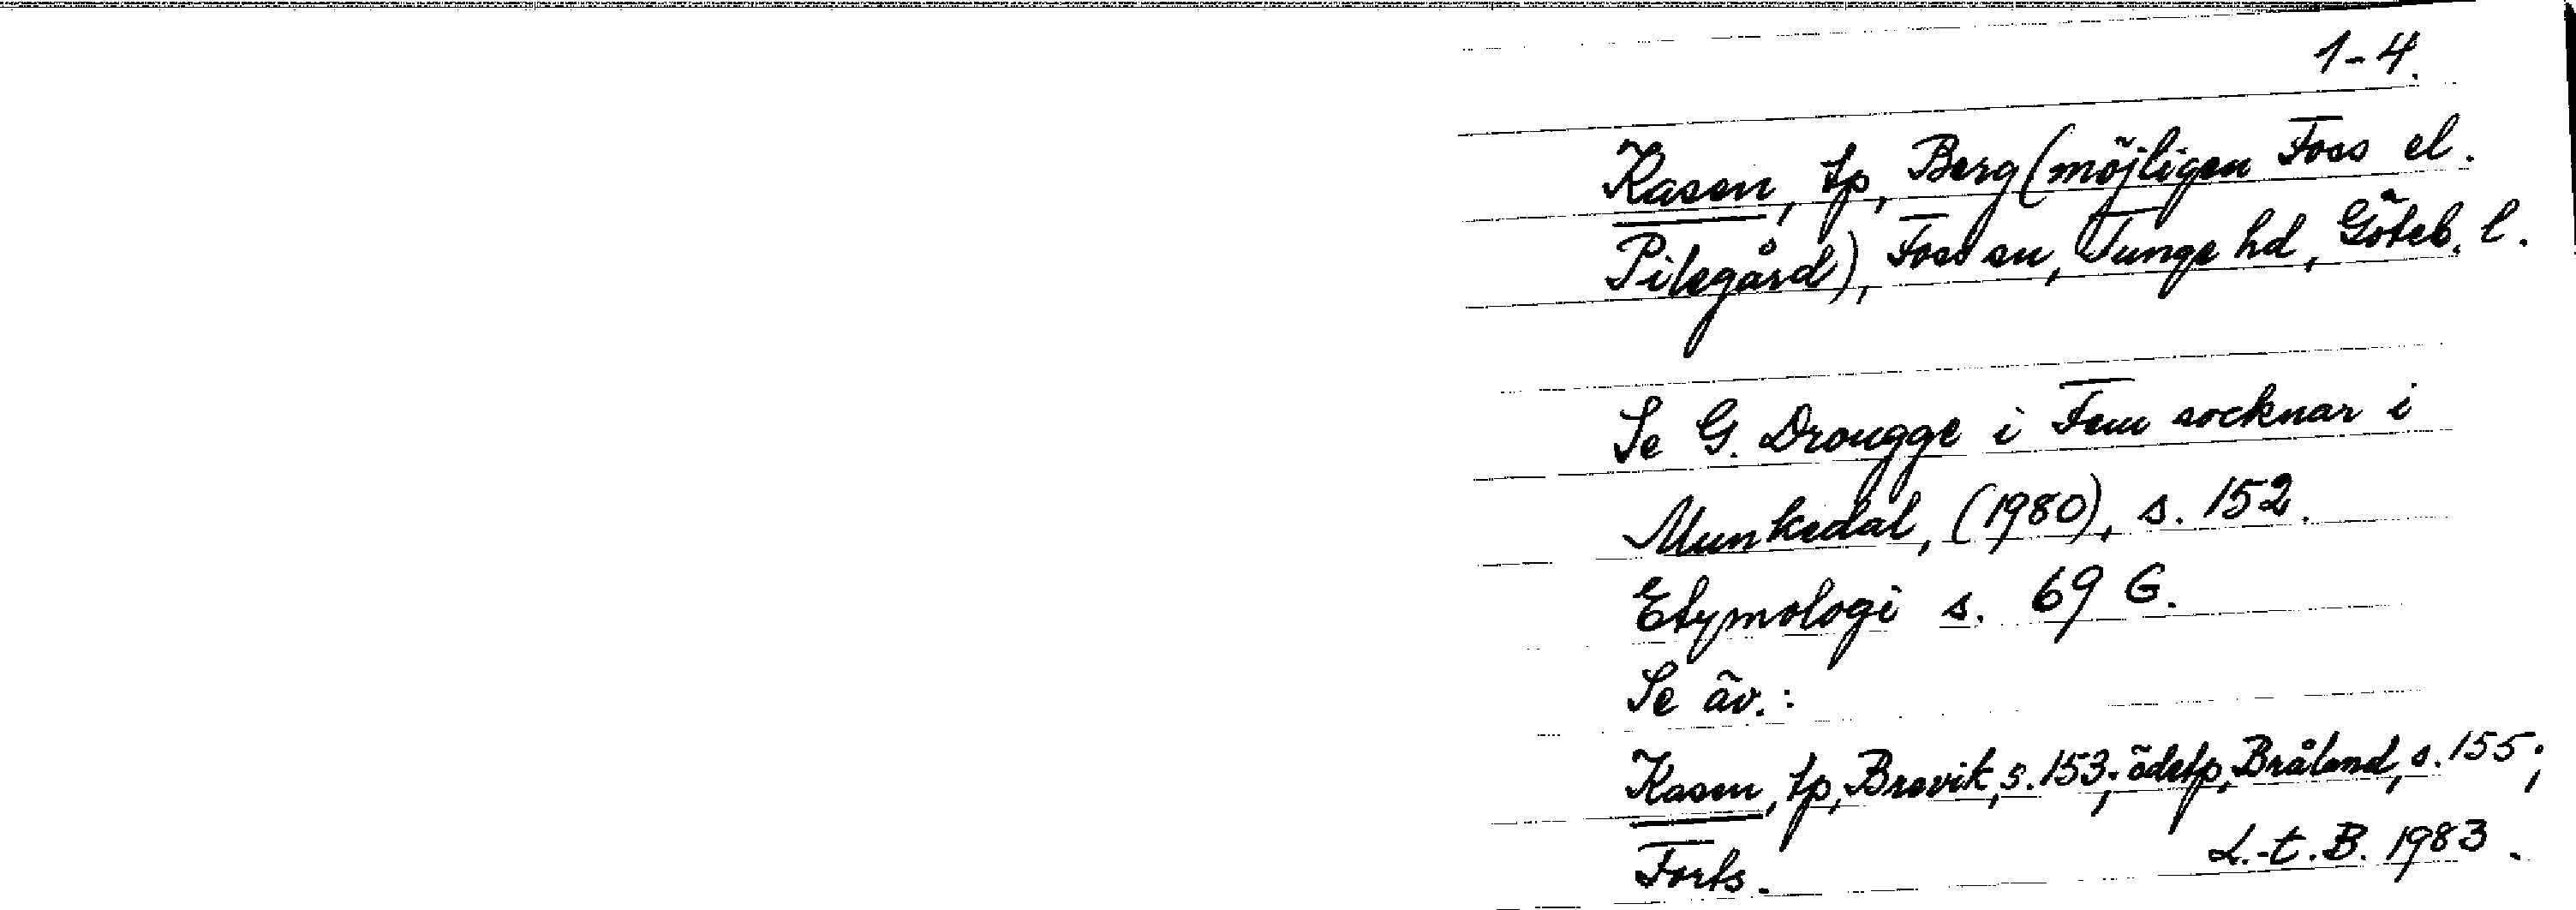 1-4.
Kasen, tp, Berg (möjligen Foss el.
Pilegård), Foss sn, Tunge hd, Göteb. l.
Se G. Drougge i Fem socknar i
Munkedal, (1980), s. 152.
Etymologi s. 69 G.
Se äv.:
Kasen, tp, Brevik, s. 153; ödetp, Bråland, s. 155;
Forts. L.-t. B. 1983.